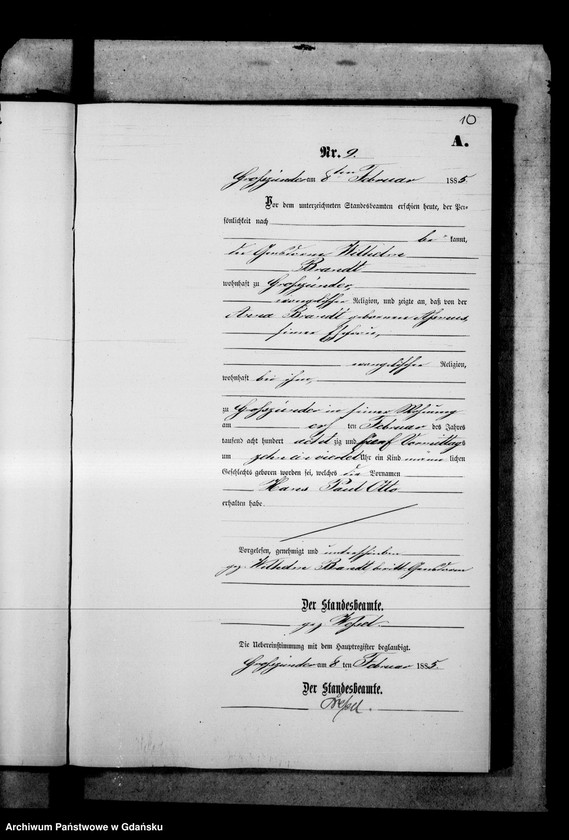 10
A.
Nr. 9.
Großzünder am 8ten Februar 1885.
Vor dem unterzeichneten Standesbeamten erschien heute, der Per-
sönlichkeit nach
be kannt,
der Gendarm
Brandt
wohnhaft zu Großzünder,
evangelischer Religion, und zeigte an, daß von der
Anna Brandt geborenen
seiner Ehefrau,
evangelischer Religion,
wohnhaft bei ihm,
zu Großzünder in seiner Wohnung
am ten Februar des Jahres
tausend acht hundert achtzig und fünf Vormittags
um Uhr ein Kind männlichen
Geschlechts geboren worden sei, welches die Vornamen
Hans Paul Otto
erhalten habe.
Vorgelesen, genehmigt und unterschrieben
gez. Brandt, Gendarm
Der Standesbeamte.
gez. Wessel.
Die Uebereinstimmung mit dem Hauptregister beglaubigt.
Großzünder am 8 ten Februar 1885.
Der Standesbeamte.
Wessel.
Archiwum Państwowe w Gdańsku